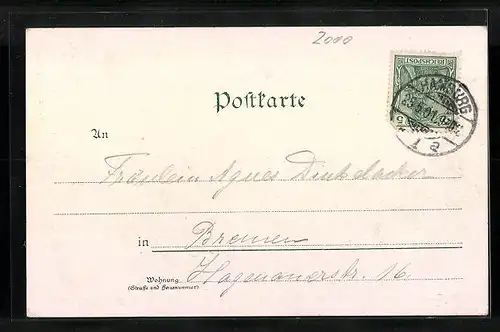 2000
REICHSPOST
HAMBURG
5
1 a
Postkarte
An
Fräulein Agnes Dinkelacker
in Bremen
Wohnung
(Straße und Hausnummer)
Hagenauerstr. 16.